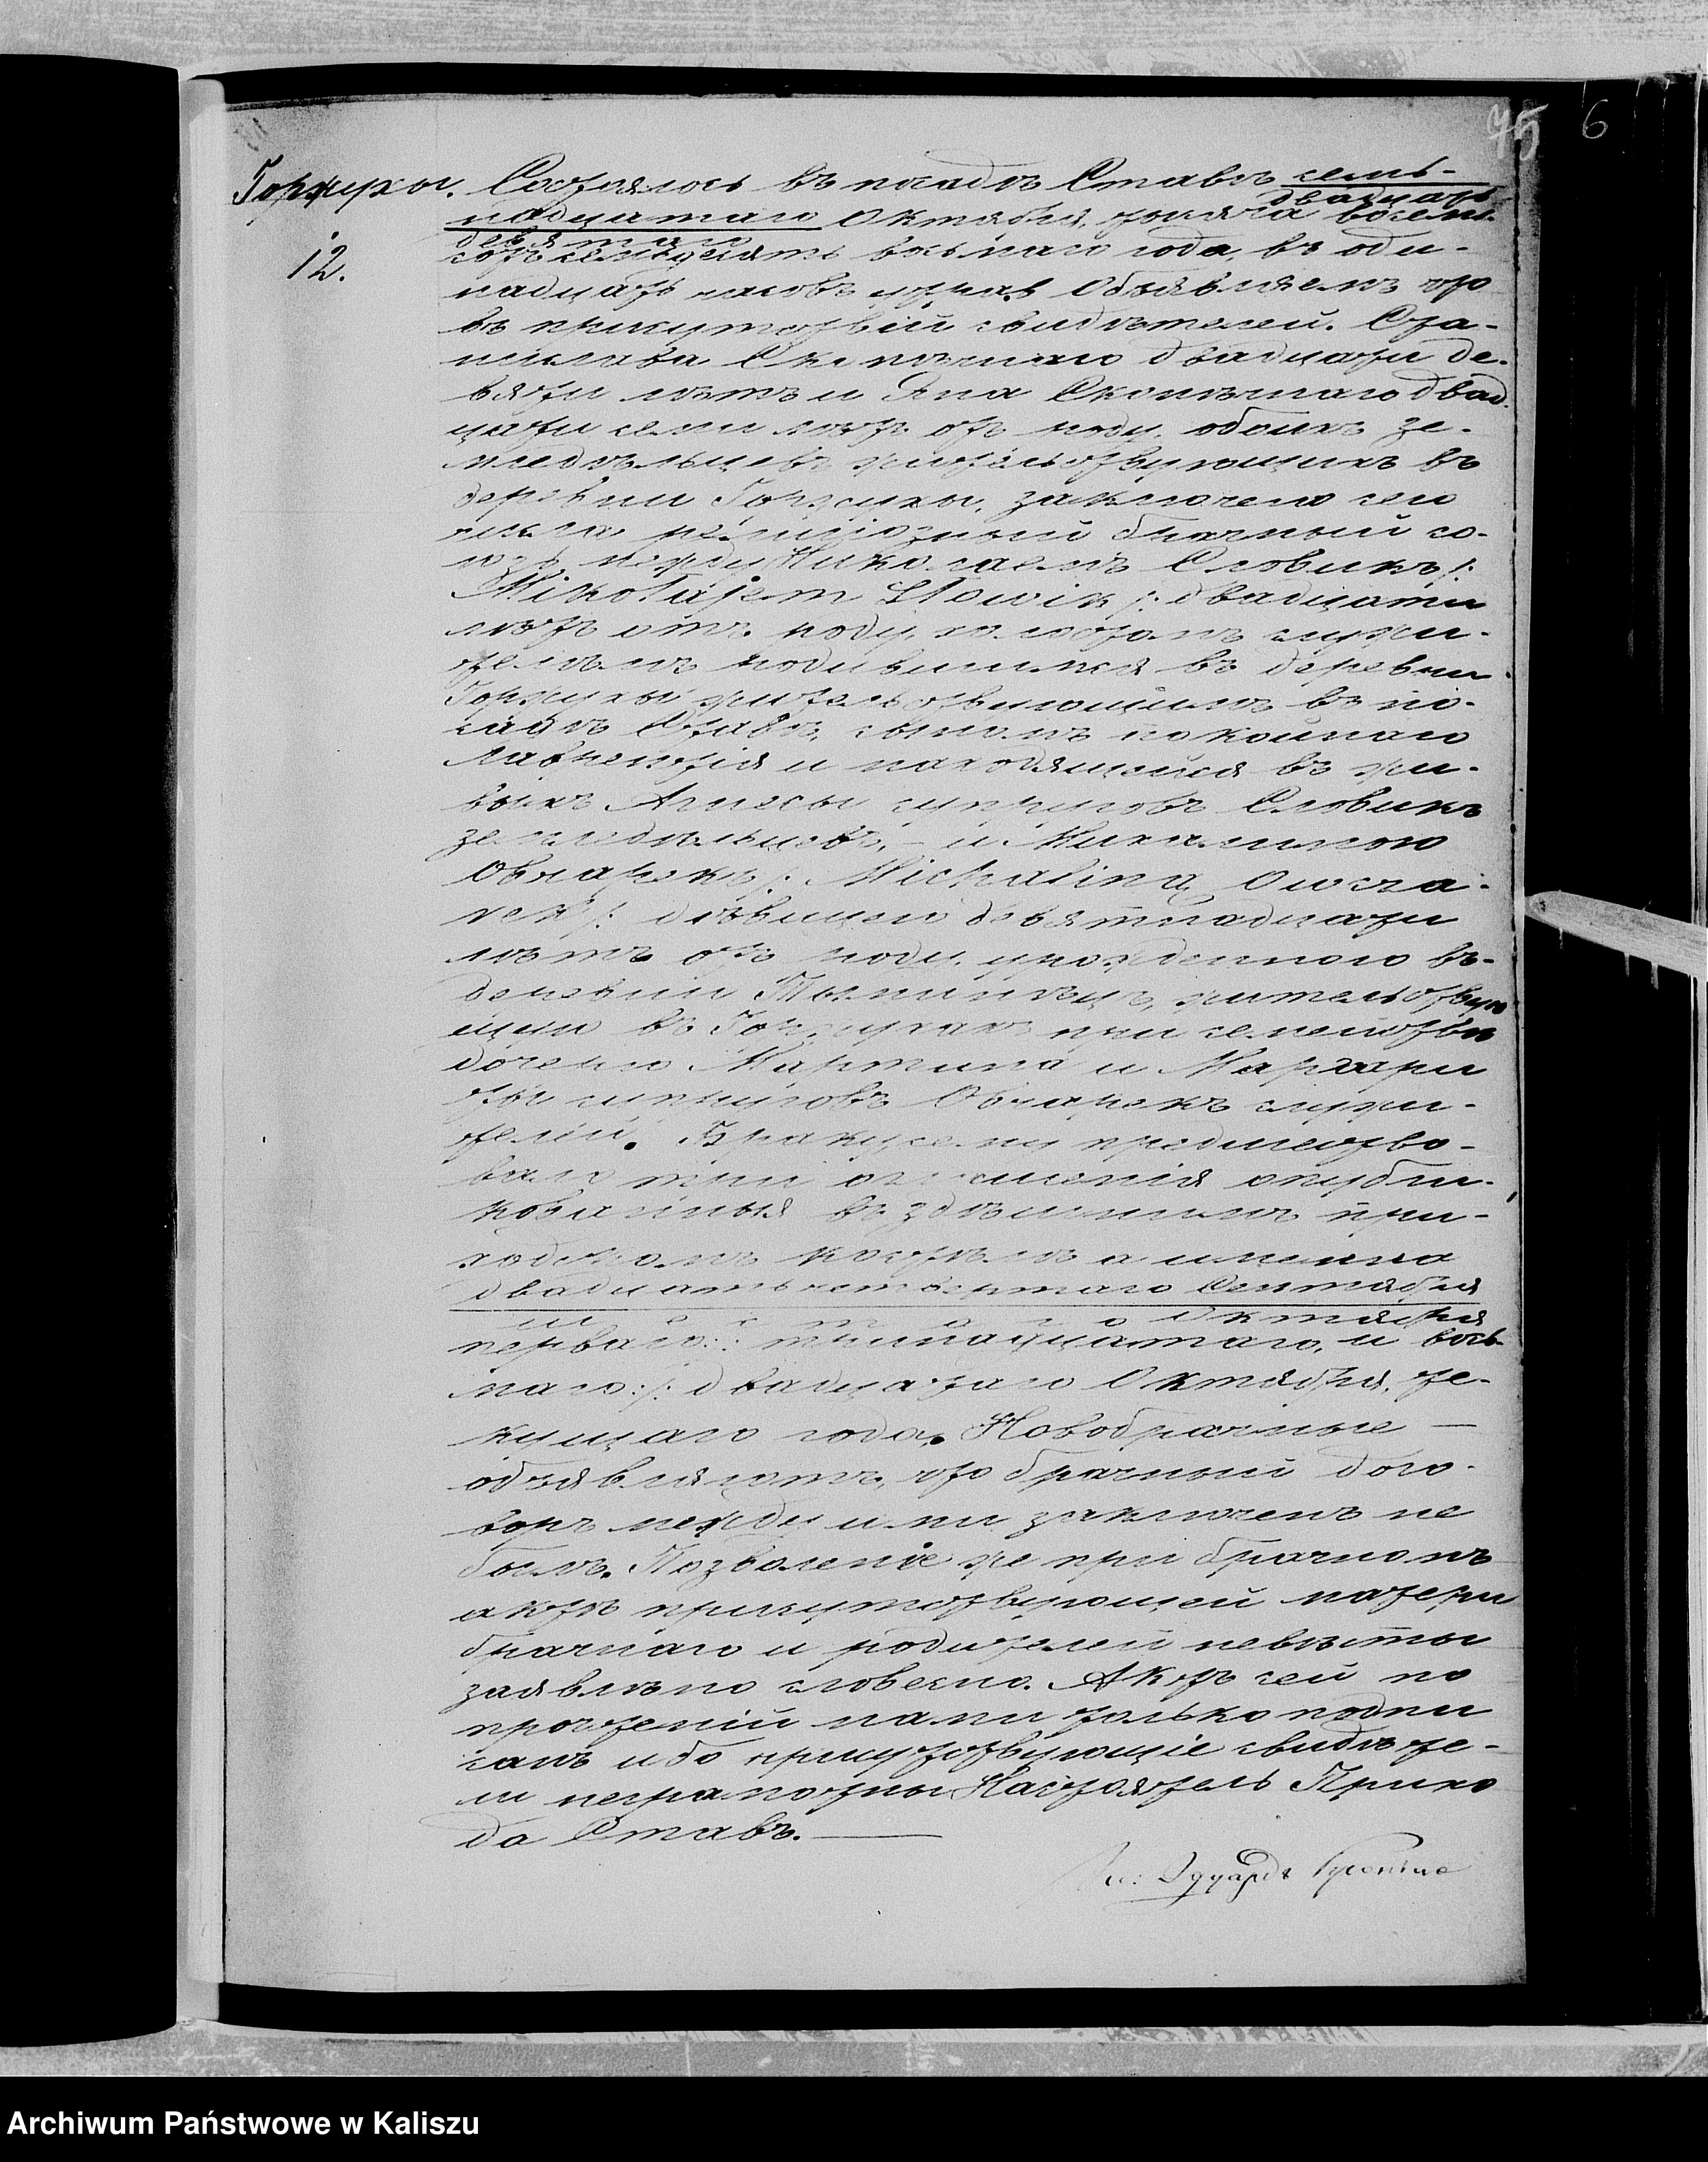 75 6
Горжухы. Состоялось въ посадѣ Ставѣ семь-
12.
двадцать
надцатаго Октября, тысяча восемь
девятаго
сотъ семьдесятъ восьмаго года, въ оди-
надцать часовъ утра. Объявляемъ что
въ присутствіи свидѣтелей. Ста-
нислава двадцати де-
вяти лѣтъ и Яна двад-
цати семи лѣтъ отъ роду, обоихъ зе-
мледѣльцевъ жительствующихъ въ
деревни Горжухы, заключено сего
числа религіозный брачный со-
юзъ между Николаемъ Словикъ /:
Mikołajem Słowik /: двадцати
лѣтъ отъ роду, холостомъ служи-
телемъ родившимся въ деревни
Горжухы жительствующимъ въ по-
садѣ Ставѣ, сыномъ покойнаго
Лаврентія и находящейся въ жи-
выхъ Агнесы супруговъ Словикъ
земледѣльцевъ, - и Михалиною
Овчарекъ /: Michaliną Owcza-
rek /: дѣвицею девятнадцати
лѣтъ отъ роду, урожденною въ-
деревни жительствую
щею въ Горжухахъ при семействѣ
дочерью Мартина и Маргари
ты супруговъ Овчарекъ служи-
телей. Браку сему предшество-
вало три оглашенія опубли-
кованныя въ здѣшнимъ при-
ходскомъ костелѣ а именно
двадцать четвертаго Сентября
шестаго Октября
перваго: тринадцатаго, и вось-
маго: /: двадцатаго Октября, те-
кущаго года. Новобрачные —
объявляютъ, что брачный дого-
воръ между ими заключенъ не
былъ. Позволеніе же при брачномъ
актѣ присутствующей матери
брачнаго и родителей невѣсты
заявлѣно словесно. Актъ сей по
прочтеніи нами только подпи
санъ ибо присутствующіе свидѣте-
ли неграмотны Настоятель Прихо
да Ставъ. —
Эдуардъ
Archiwum Państwowe w Kaliszu